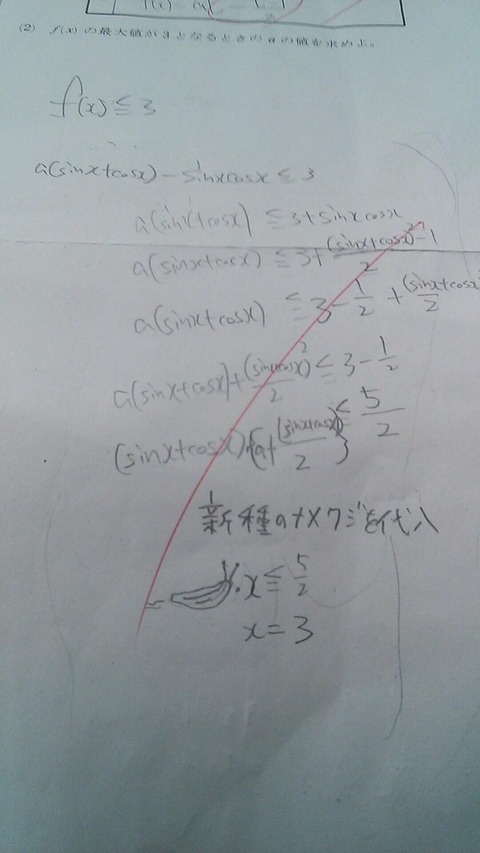 (2) f(x) の最大値が3となるときの a の値を求めよ。
f(x) ≦ 3
a(sinx+cosx) - sinxcosx ≦ 3
a(sinx+cosx) ≦ 3+sinxcosx
a(sinx+cosx) ≦ 3+ (sinx+cosx)²-1 / 2
a(sinx+cosx) ≦ 3 - 1/2 + (sinx+cosx / 2
a(sinx+cosx)+ (sinxcosx)² / 2 ≦ 3 - 1/2
(sinx+cosx){a+ (sinx+cosx) / 2} ≦ 5/2
新種のナメクジを代入
x ≦ 5/2
x = 3